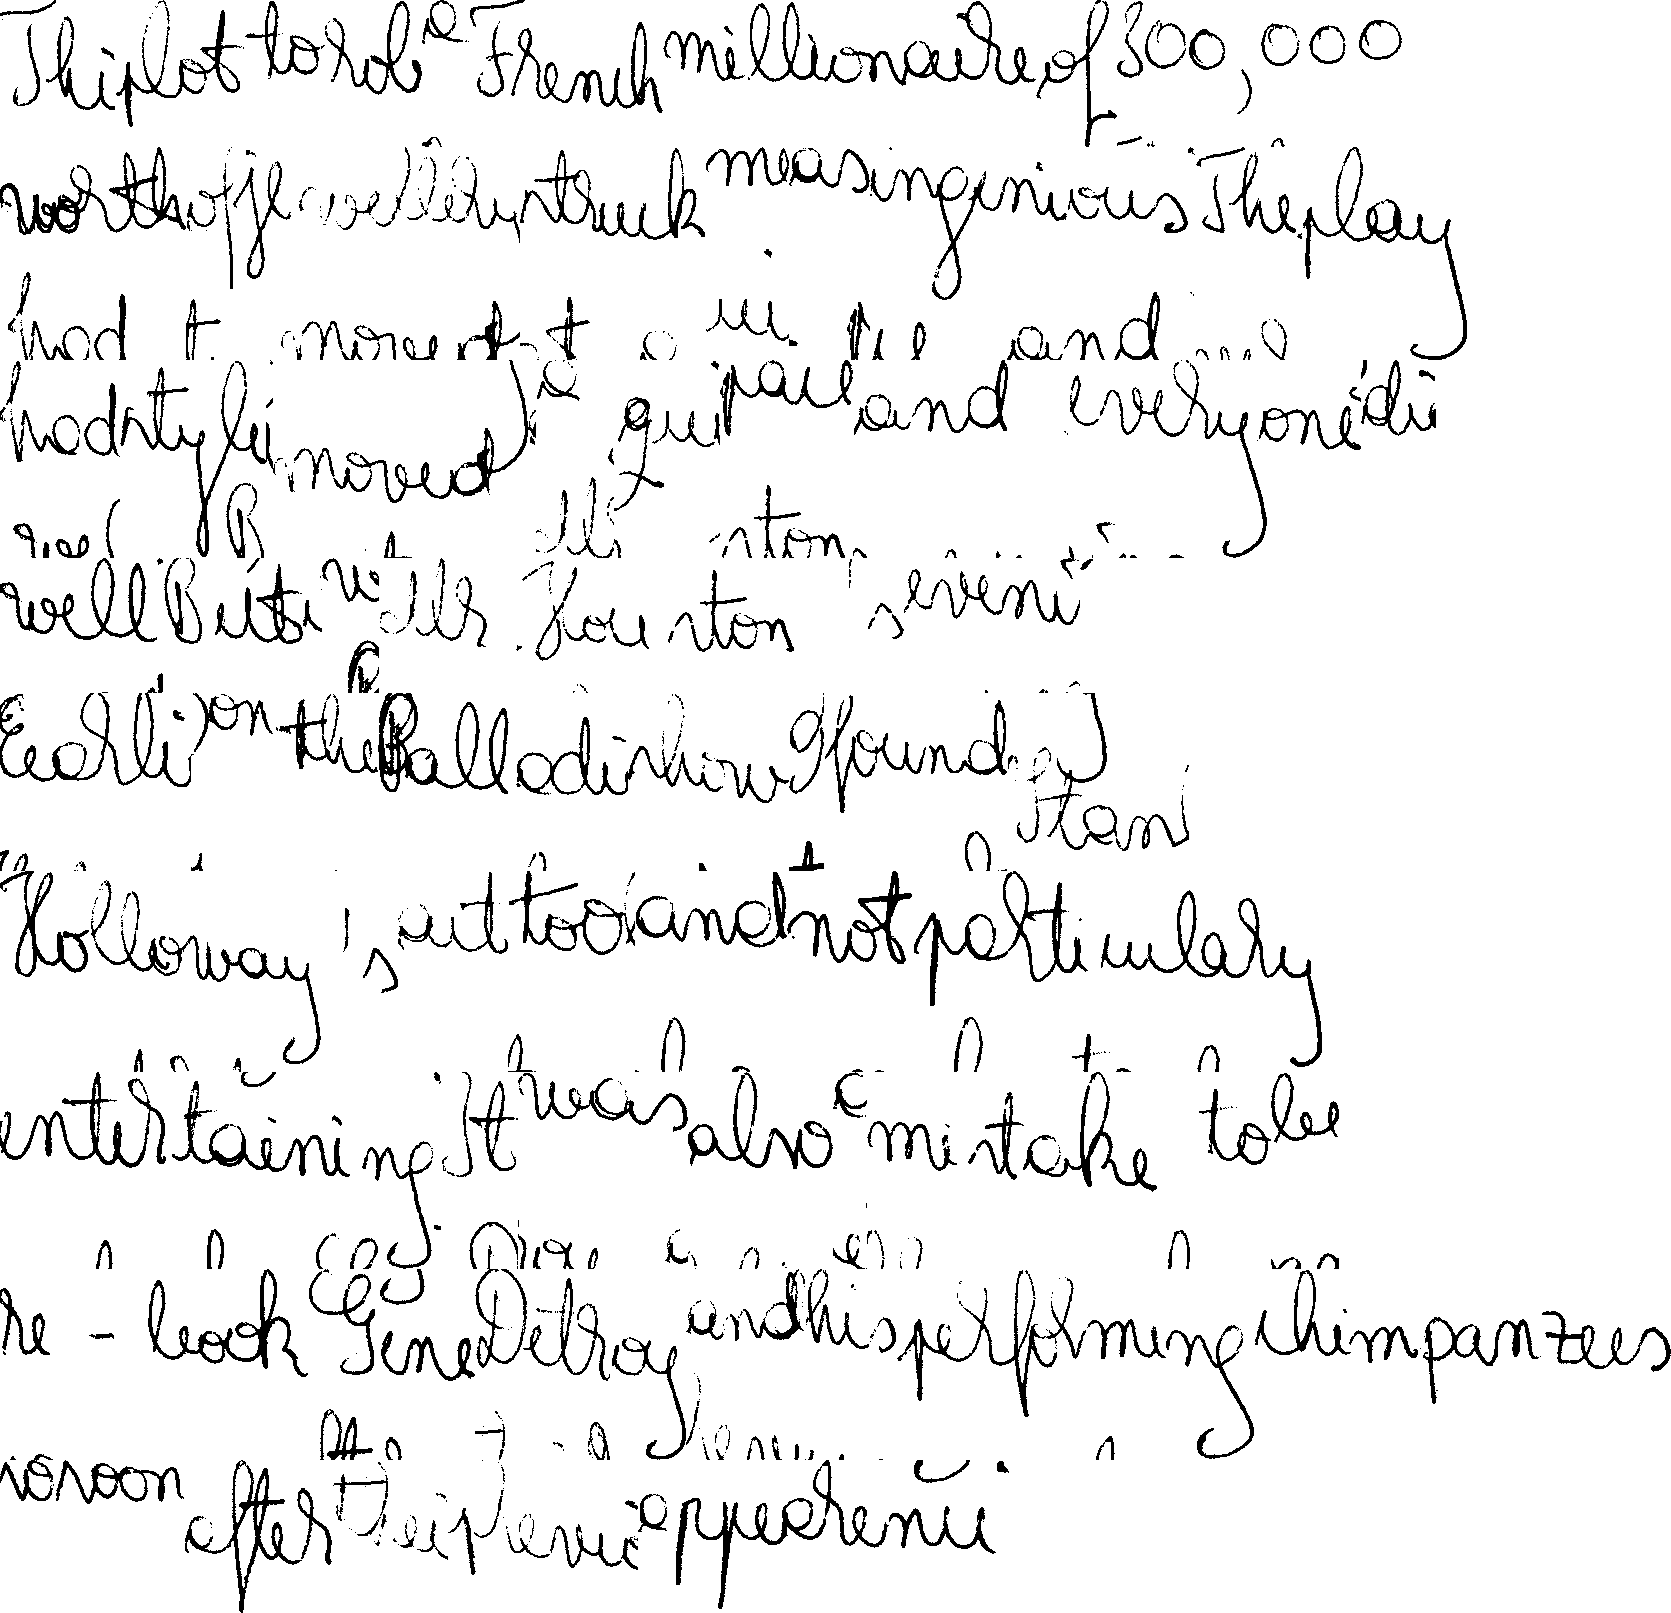 The plot to rob a French millionaire of 300,000
worth of jewellery struck me as ingenious The play
had style, moved at a quit pace and everyone did
well But Mr. Houston 's
Earli on the Palladi show I found Stan
Holloway 's act too and not particulary
entertaining It was also a mistake to be
re - book Gene Detroy and his performing chimpanzees
so soon after their previ appearence